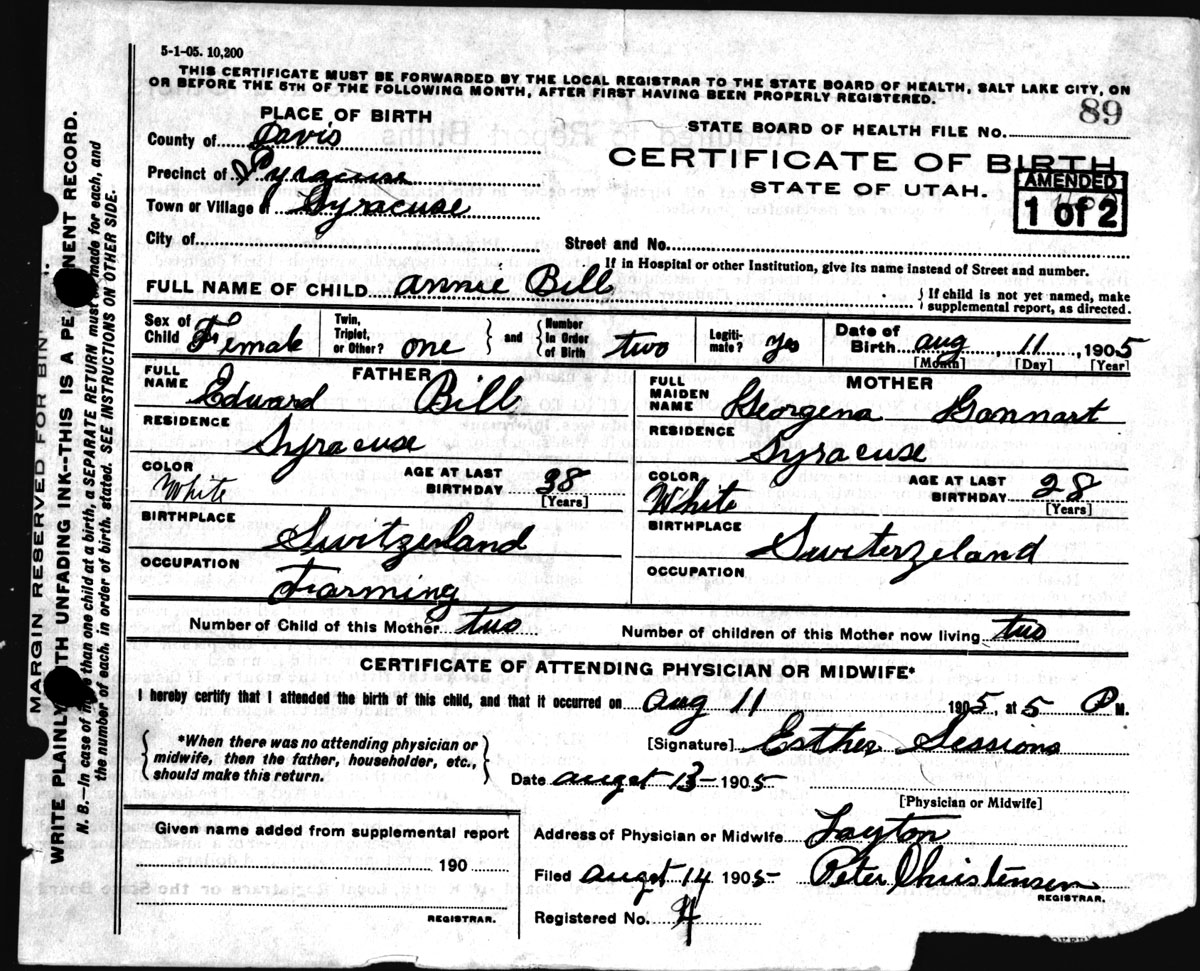 5-1-05. 10,200
THIS CERTIFICATE MUST BE FORWARDED BY THE LOCAL REGISTRAR TO THE STATE BOARD OF HEALTH, SALT LAKE CITY, ON
OR BEFORE THE 5TH OF THE FOLLOWING MONTH, AFTER FIRST HAVING BEEN PROPERLY REGISTERED.
PLACE OF BIRTH
STATE BOARD OF HEALTH FILE NO. 89
County of Davis
CERTIFICATE OF BIRTH
Precinct of Syracuse
STATE OF UTAH.
AMENDED
1 of 2
Town or Village of Syracuse
City of
Street and No.
If in Hospital or other Institution, give its name instead of Street and number.
FULL NAME OF CHILD Annie Bill
} If child is not yet named, make
supplemental report, as directed.
Sex of Child Female
Twin, Triplet, or Other? one } and { Number In Order of Birth two
Legitimate? yes
Date of Birth Aug 11, 1905
[Month] [Day] [Year]
FATHER
FULL NAME Edward Bill
RESIDENCE Syracuse
COLOR White
AGE AT LAST BIRTHDAY 38
[Years]
BIRTHPLACE Switzerland
OCCUPATION Farming
MOTHER
FULL MAIDEN NAME Georgena Gannart
RESIDENCE Syracuse
COLOR White
AGE AT LAST BIRTHDAY 28
[Years]
BIRTHPLACE Switerzeland
OCCUPATION
Number of Child of this Mother two
Number of children of this Mother now living two
CERTIFICATE OF ATTENDING PHYSICIAN OR MIDWIFE*
I hereby certify that I attended the birth of this child, and that it occurred on Aug 11 1905, at 5 P M.
{ *When there was no attending physician or
midwife, then the father, householder, etc.,
should make this return. }
[Signature] Esther Sessions
Date auget 13 - 1905
[Physician or Midwife]
Given name added from supplemental report
190
REGISTRAR.
Address of Physician or Midwife Layton
Filed auget 14 1905 Peter Christensen
REGISTRAR.
Registered No. 4
MARGIN RESERVED FOR BIN
WRITE PLAINLY WITH UNFADING INK--THIS IS A PE NENT RECORD.
N. B.--In case of more than one child at a birth, a SEPARATE RETURN must be made for each, and
the number of each, in order of birth, stated. SEE INSTRUCTIONS ON OTHER SIDE.